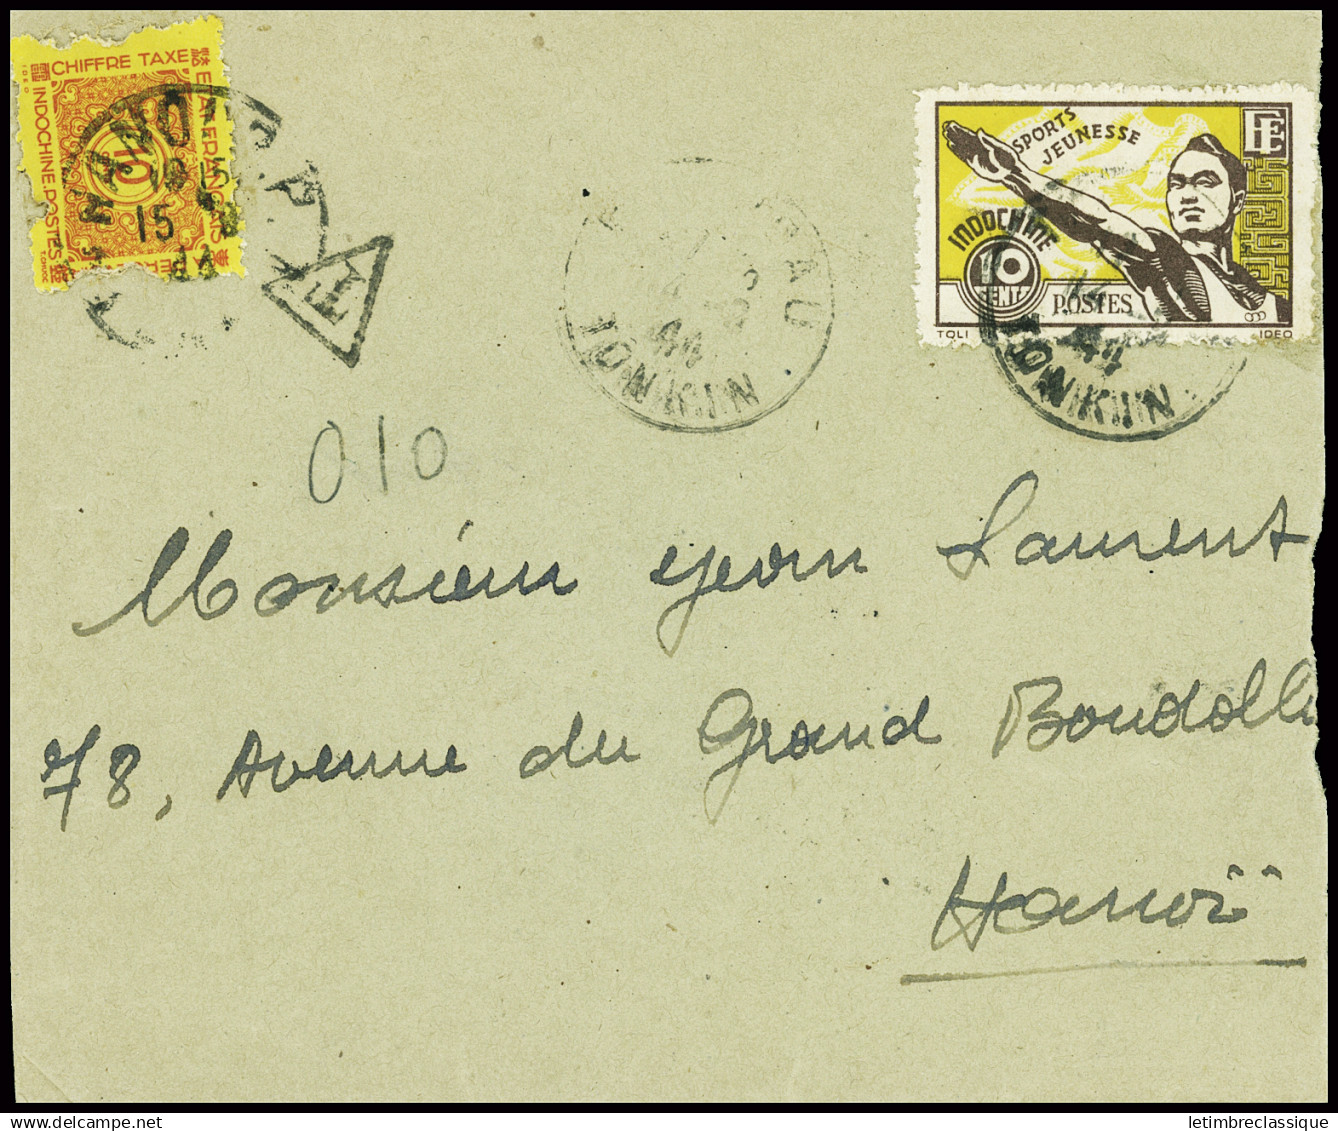 CHIFFRE TAXE
INDOCHINE.POSTES
10
IDEO
HANOI
15
SPORTS
JEUNESSE
INDOCHINE
10
CENTS
POSTES
TOLI IDEO
T
14
44
TONKIN
14
44
TONKIN
010
Monsieur Jean Laurent
78, Avenue du Grand Boudollé
Hanoï
letimbreclassique